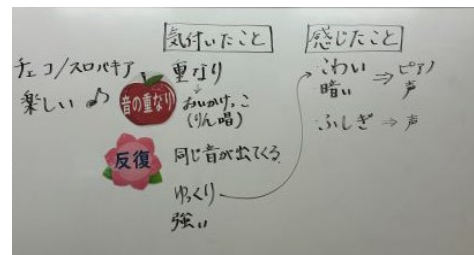 気付いたこと
感じたこと
チェコ/スロバキア
楽しい♪
音の重なり
重なり
↓
おいかけっこ
(りん唱)
反復
同じ音が出てくる
ゆっくり
強い
こわい
暗い
⇒ピアノ
声
ふしぎ⇒声